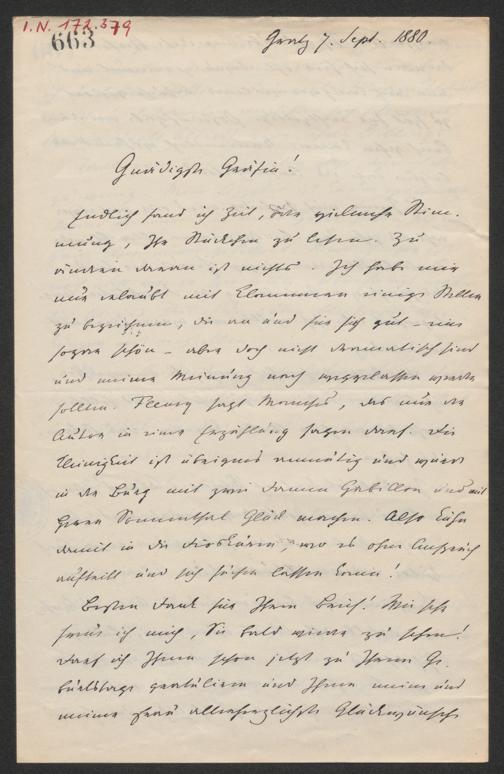 I.N. 172.379
663
Gratz 7. Sept. 1880
Gnädigste Gräfin!
Endlich fand ich Zeit, oder vielmehr Stim-
mung, Ihr Stückchen zu lesen. Zu
ändern daran ist nichts. Ich habe mir
nur erlaubt mit Klammern einige Stellen
zu bezeichnen, die an und für sich gut –
sogar schön – aber doch nicht dramatisch sind
und meiner Meinung nach weggelassen werden
sollten. Fleury sagt Manches, das nur der
Autor in einer Erzählung sagen darf. Die
Kleinigkeit ist übrigens anmutig und würde
in der Burg mit zwei Damen Gabillon und mit
Herrn Sonnenthal Glück machen. Also kühn
damit in die wo es ohne Anspruch
auftritt und sich sehen lassen kann!
Besten Dank für Ihren Brief! Wie sehr
freue ich mich, Sie bald wieder zu sehen!
Darf ich Ihnen schon jetzt zu Ihrem Ge-
burtstage gratuliren und Ihnen meine und
meiner Frau allerherzlichste Glückwünsche